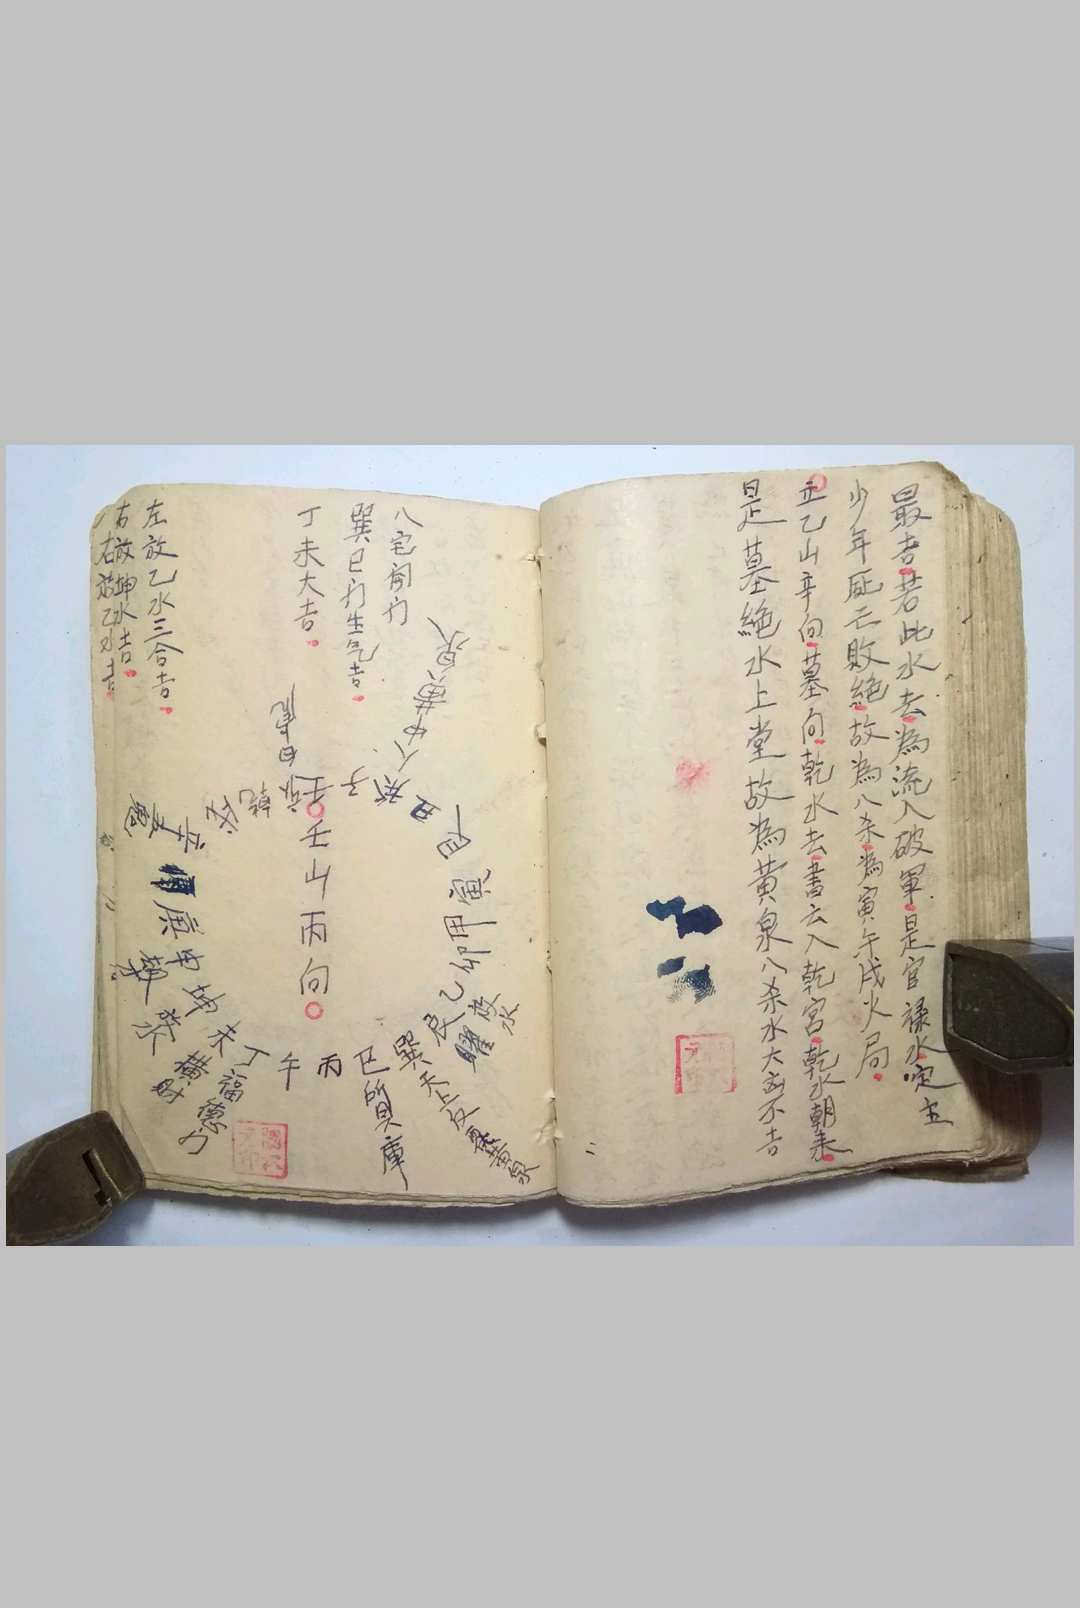 最吉若此水去為流入破軍是官祿水定主
少年厎亡敗絕故為八杀為寅午戌火局
立乙山辛向墓向乾水去書云入乾宮乾水朝来
是墓絕水上堂故為黃泉八杀水大凶不吉
八宅開门
巽巳方生气吉
丁未大吉
壬山丙向
左放乙水三合吉
右放坤水吉
右放乙水吉
壬
子
癸
丑
艮
寅
甲
卯
乙
辰
巽
巳
丙
午
丁
未
坤
申
庚
辛
乾
八中黃泉
曜殺水
質庫
福德方
橫財
二